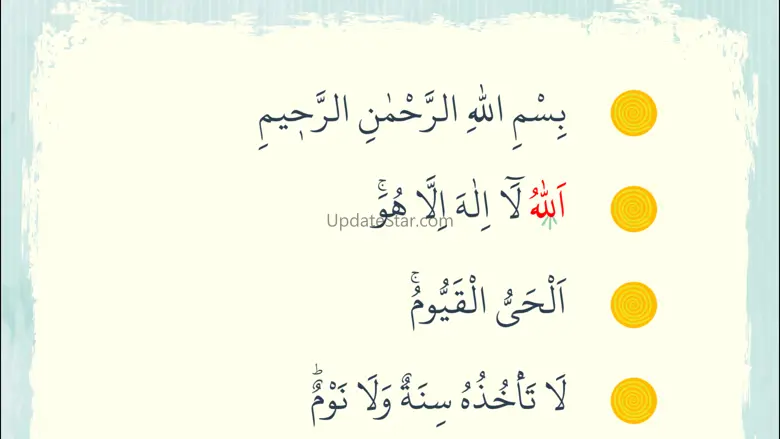 بِسْمِ اللّٰهِ الرَّحْمٰنِ الرَّحٖيمِ
اَللّٰهُ لَٓا اِلٰهَ اِلَّا هُوَۚ
UpdateStar.com
اَلْحَيُّ الْقَيُّومُۚ
لَا تَأْخُذُهُ سِنَةٌ وَلَا نَوْمٌؕ